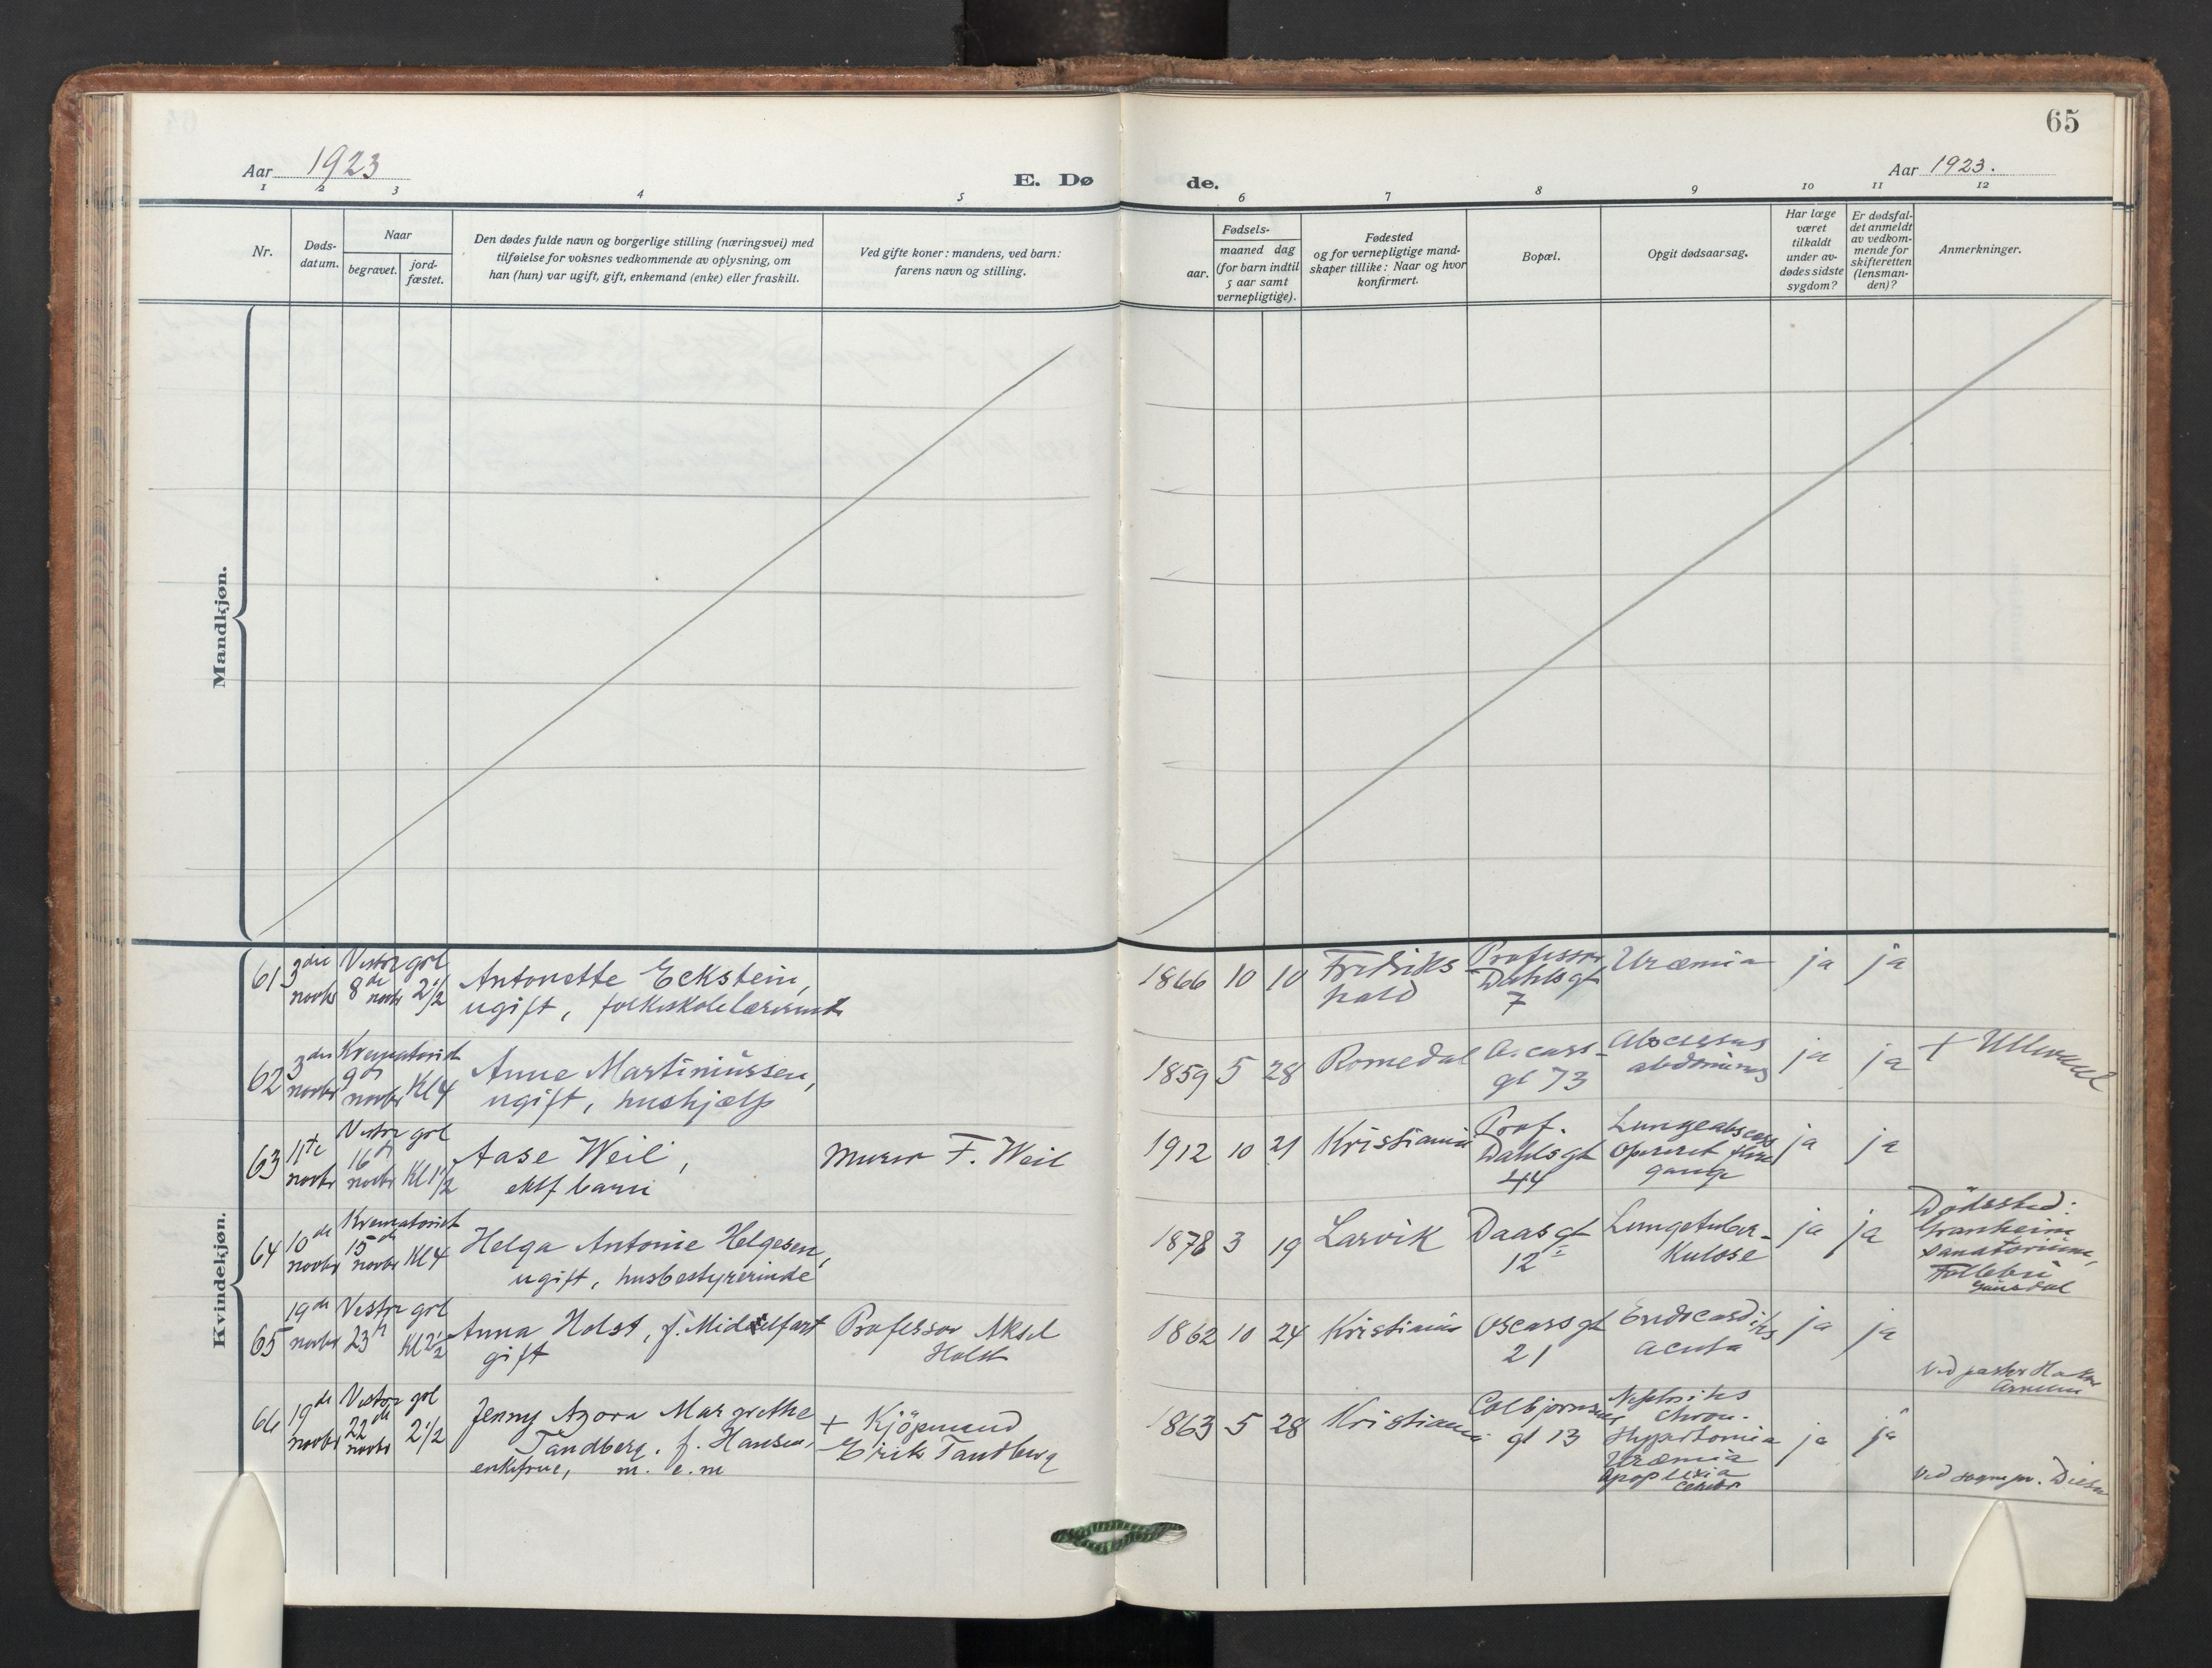 65
Aar 1923
E. Dø
de.
Aar 1923.
1 2 3 4 5
6 7 8 9 10 11 12
Nr.
Døds-
datum.
Naar
begravet.
jord-
fæstet.
Den dødes fulde navn og borgerlige stilling (næringsvei) med
tilføielse for voksnes vedkommende av oplysning, om
han (hun) var ugift, gift, enkemand (enke) eller fraskilt.
Ved gifte koner: mandens, ved barn:
farens navn og stilling.
Fødsels-
aar.
maaned dag
(for barn indtil
5 aar samt
vernepligtige).
Fødested
og for vernepligtige mand-
skaper tillike: Naar og hvor
konfirmert.
Bopæl.
Opgit dødsaarsag.
Har læge
været
tilkaldt
under av-
dødes sidste
sygdom?
Er dødsfal-
det anmeldt
av vedkom-
mende for
skifteretten
(lensman-
den)?
Anmerkninger.
Mandkjøn.
Kvindekjøn.
61 3die novbr
Vestre grl
8de novbr 2½
Antonette Eckstein,
ugift, folkeskolelærerinde
1866 10 10
Fredriks
hald
Professor
Dahls gt
7
Uræmia
ja ja
62 3die novbr
Krematoriet
9de novbr Kl 4
Anne Martiniussen,
ugift, hushjælp
1859 5 28
Romedal
Oscars
gt 73
Abscessus
abdominis
ja ja
+ Ullevaal
63 11te novbr
Vestre grl
16de novbr Kl 1½
Aase Weil,
ektf barn
Murer F. Weil
1912 10 21
Kristiania
Prof.
Dahls gt
44
Lungeabscess
Opereret flere
gange
ja ja
64 10de novbr
Krematoriet
15de novbr Kl 4
Helga Antonie Helgesen,
ugift, husbestyrerinde
1878 3 19
Larvik
Daas gt
12 I
Lungetuber-
kulose
ja ja
Dödssted:
Granheim
Sanatorium,
Follebu
Gausdal
65 19de novbr
Vestre grl
23de Kl 2½
Anna Holst, f. Middelfart
gift
Professor Aksel
Holst
1862 10 24
Kristiania
Oscars gt
21
Endocarditis
acuta
ja ja
Ved pastor
66 19de novbr
Vestre grl
22de novbr 2½
Jenny Agora Margrethe
Tandberg, f. Hansen,
enkefrue, m. e. m
+ Kjöpmand
Erik Tandberg
1863 5 28
Kristiania
Colbjornsens
gt 13
Nephritis
chron.
Hypertonia
Uræmia
Apoplexia
cerebr
ja ja
Ved sognepr.